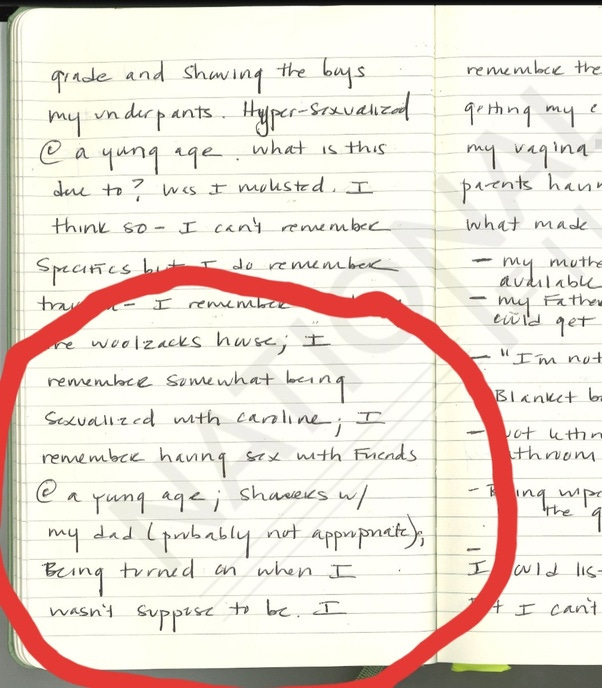 grade and showing the boys
my underpants. Hyper-sexualized
@ a yung age. what is this
due to? Was I molested. I
think so - I can't remember
specifics but I do remember
trauma - I remember
woolzacks house; I
remember somewhat being
sexualized with caroline; I
remember having sex with Friends
@ a yung age; showers w/
my dad (probably not appropriate);
Being turned on when I
wasn't suppose to be. I
remember the
getting my
my vagina.
parents
what made
- my
available
- my Father
could get
- "I'm not
Blanket
-
-
the
-
I
I can't
NATIONAL